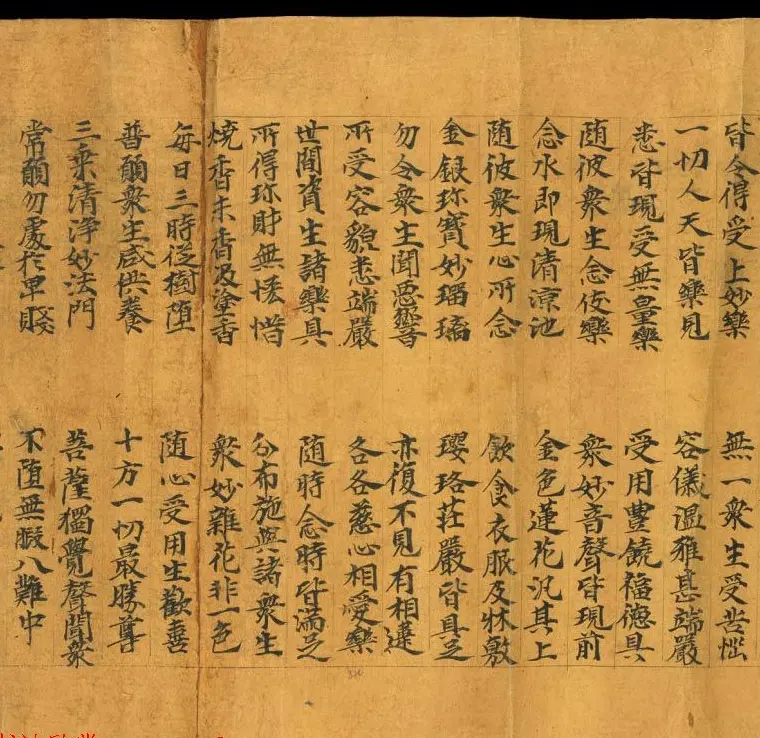 皆令得受上妙樂 無一衆生受苦惱
一切人天皆樂見 容儀温雅甚端嚴
悉皆現受無量樂 受用豊饒福德具
随彼衆生念伎樂 衆妙音聲皆現前
念水即現清涼池 金色蓮花汎其上
随彼衆生心所念 飲食衣服及牀敷
金銀珎寶妙瑠璃 瓔珞莊嚴皆具足
勿令衆生聞惡響 亦復不見有相違
所受容貌悉端嚴 各各慈心相愛樂
世間資生諸樂具 随時念時皆滿足
所得珎財無悋惜 分布施與諸衆生
燒香末香及塗香 衆妙雜花非一色
每日三時從樹墮 随心受用生歡喜
普願衆生咸供養 十方一切最勝尊
三乘清淨妙法門 菩薩獨覺聲聞衆
常願勿處於卑賤 不墮無暇八難中